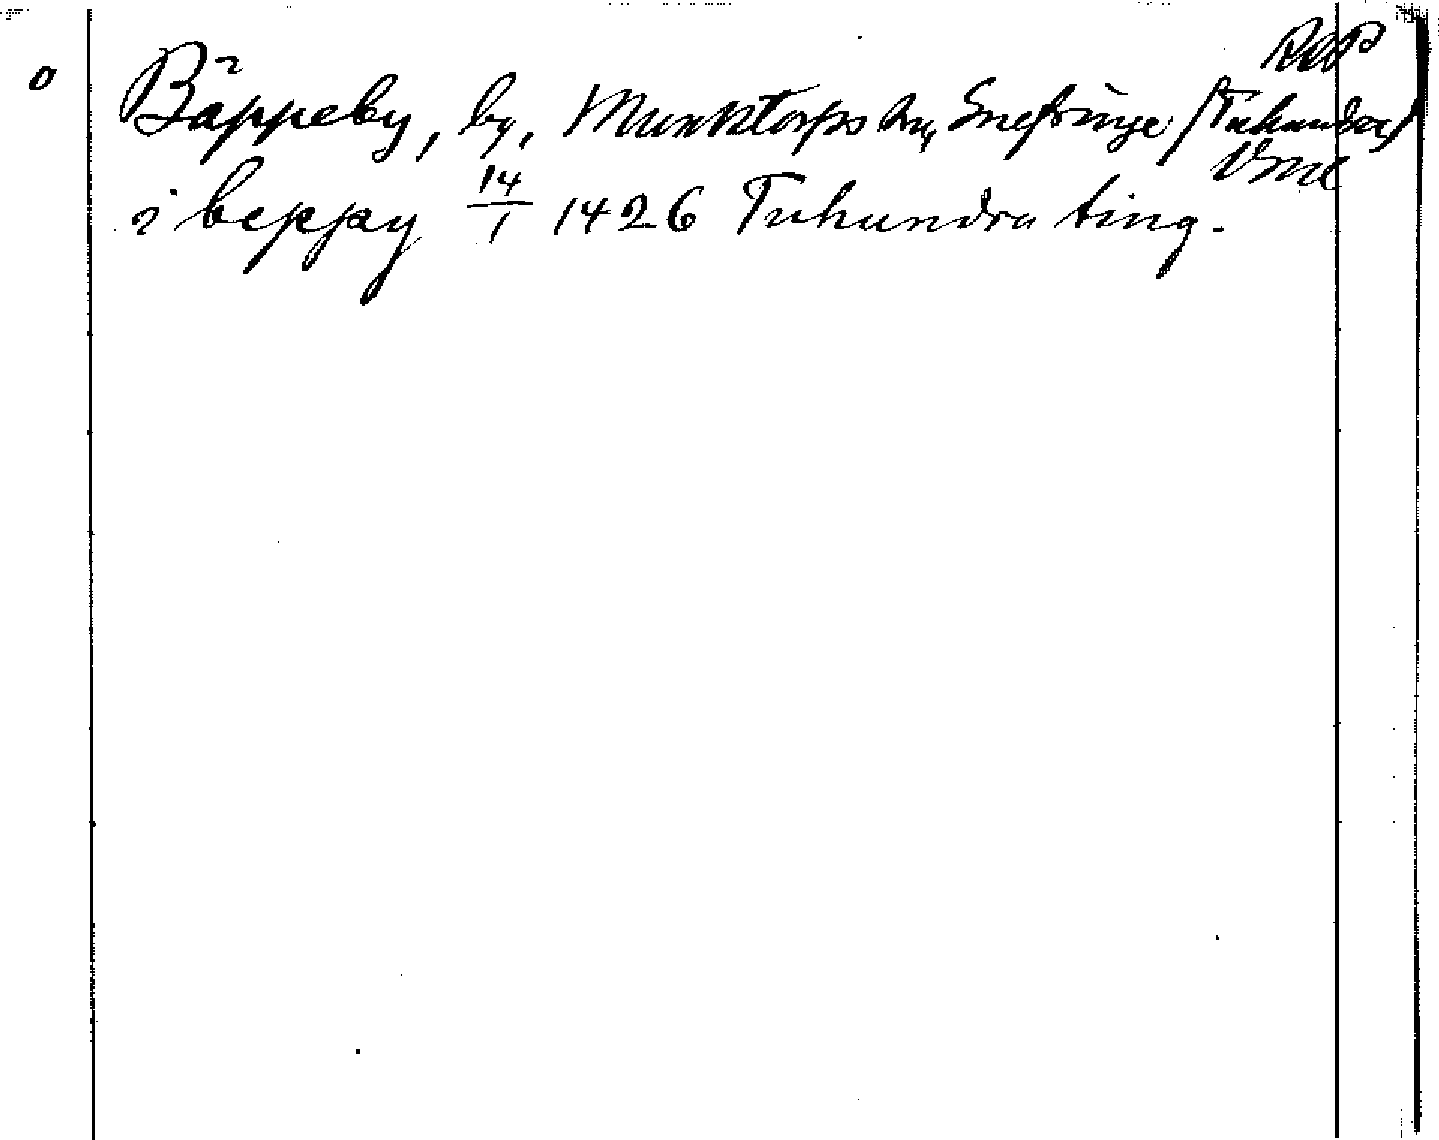 RAP
o Bäppeby, by, Munktorps sn, Snefringe (Tuhundra)
Vml
i beppay 14/1 1426 Tuhundra ting.